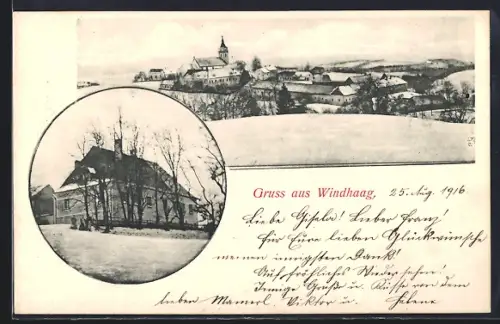 Gruss aus Windhaag, 25. Aug. 1916
Liebe Gisela! Lieber Franz!
Für Eure lieben Glückwünsche
meinen innigsten Dank!
Auf fröhliches Wiedersehen!
Innige Grüße u. Küsse von dem
lieben Mamerl. Viktor u. Helene